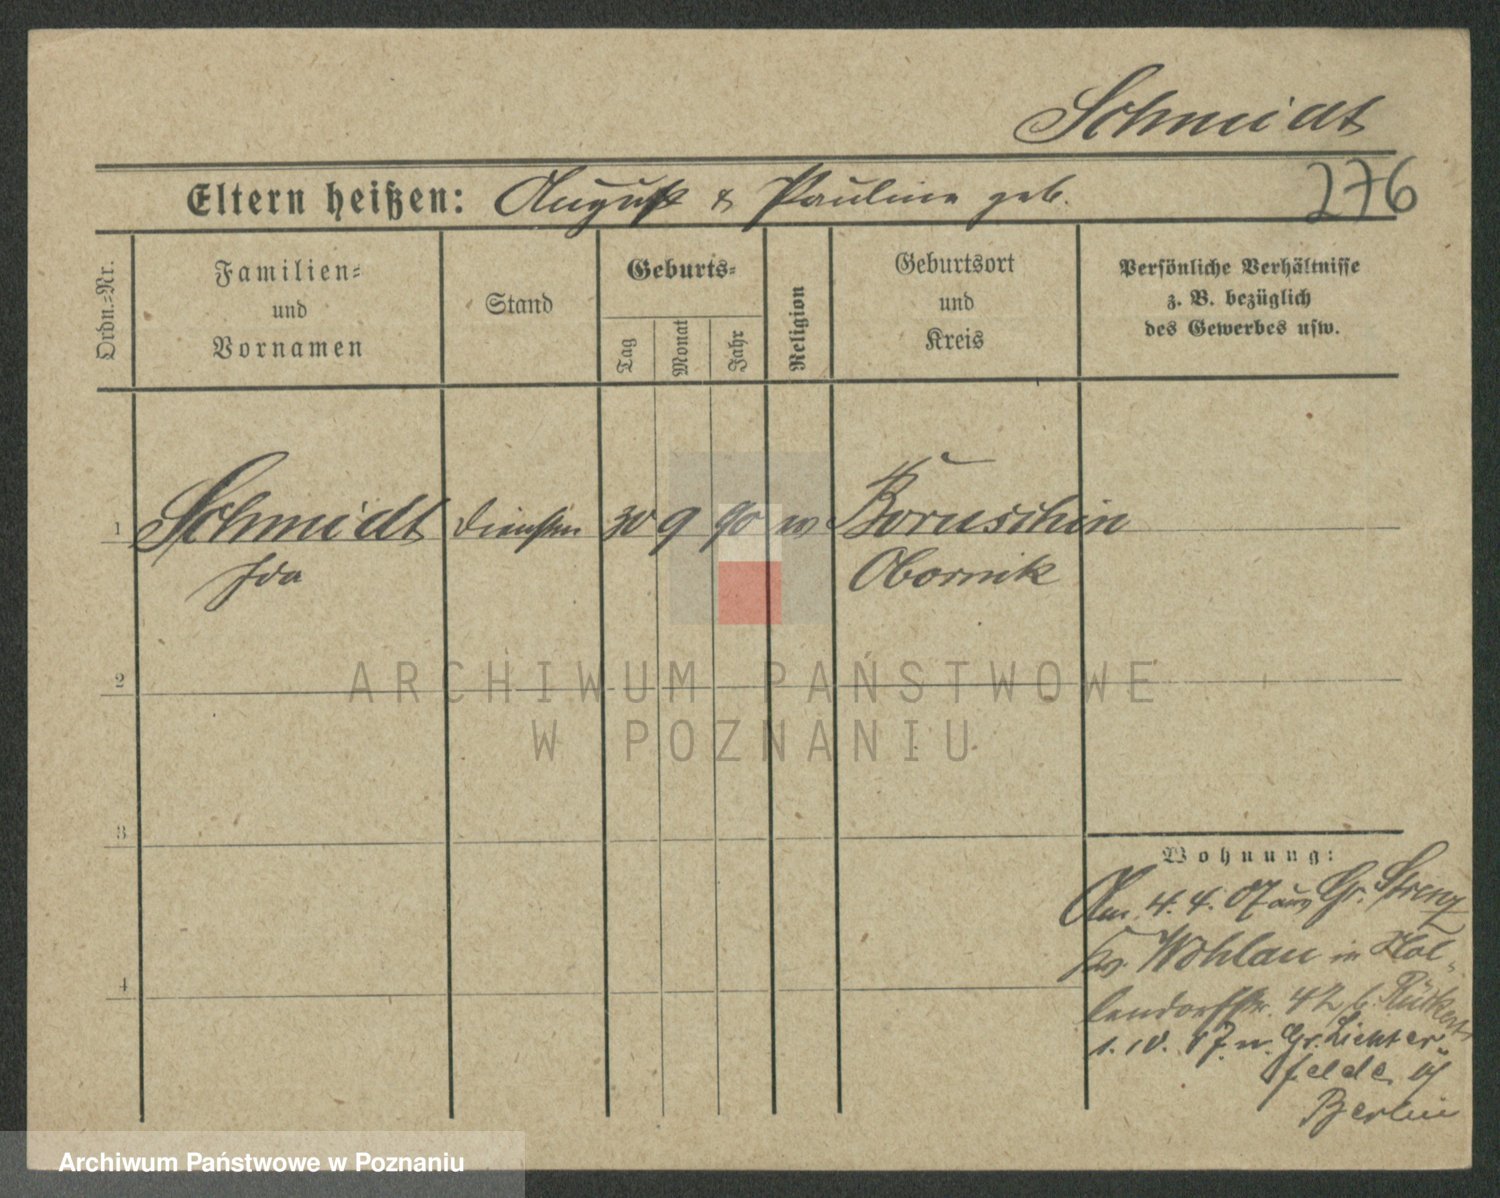 Schmidt
Eltern heißen: August & Pauline geb.
276
Ordn.-Nr.
Familien-
und
Vornamen
Stand
Geburts-
Tag
Monat
Jahr
Religion
Geburtsort
und
Kreis
Persönliche Verhältnisse
z. B. bezüglich
des Gewerbes usw.
1 Schmidt 30 9 90 Boruschin
Ida Obornik
2
3
4
ARCHIWUM PAŃSTWOWE
W POZNANIU
Wohnung:
Am 4. 4. 07 aus Gr. Strenz
Kr. Wohlau in Hol-
lendorffstr. 42 b. Rückert
1. 10. 07 n. Gr. Lichter-
felde
Berlin
Archiwum Państwowe w Poznaniu